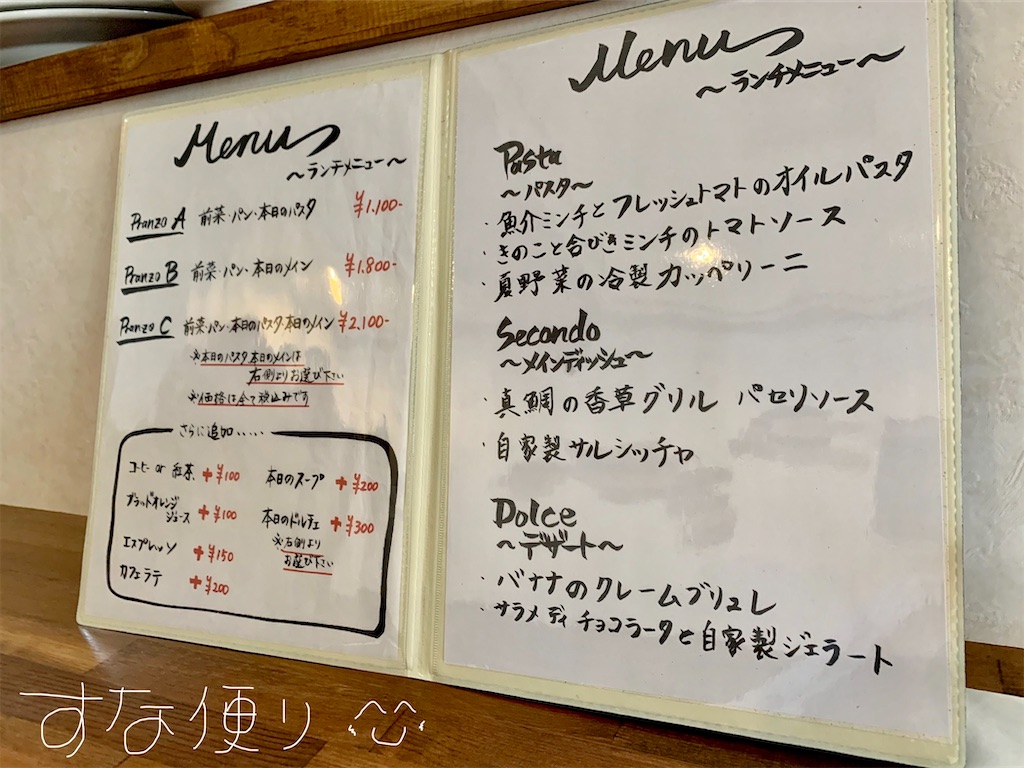 Menu
～ランチメニュー～
Pranzo A 前菜・パン・本日のパスタ ¥1.100-
Pranzo B 前菜・パン・本日のメイン ¥1.800-
Pranzo C 前菜・パン・本日のパスタ・本日のメイン ¥2.100-
※本日のパスタ 本日のメインは
右側よりお選び下さい
※価格は全て税込みです
さらに追加.....
コーヒー or 紅茶 +¥100
ブラッドオレンジ
ジュース +¥100
エスプレッソ +¥150
カフェラテ +¥200
本日のスープ +¥200
本日のドルチェ +¥300
※右側より
お選び下さい
Menu
～ランチメニュー～
Pasta
～パスタ～
・魚介ミンチとフレッシュトマトのオイルパスタ
・きのこと合びきミンチのトマトソース
・夏野菜の冷製カッペリーニ
Secondo
～メインディッシュ～
・真鯛の香草グリル パセリソース
・自家製サルシッチャ
Dolce
～デザート～
・バナナのクレームブリュレ
・サラメ ディ チョコラータと自家製ジェラート
すな便り